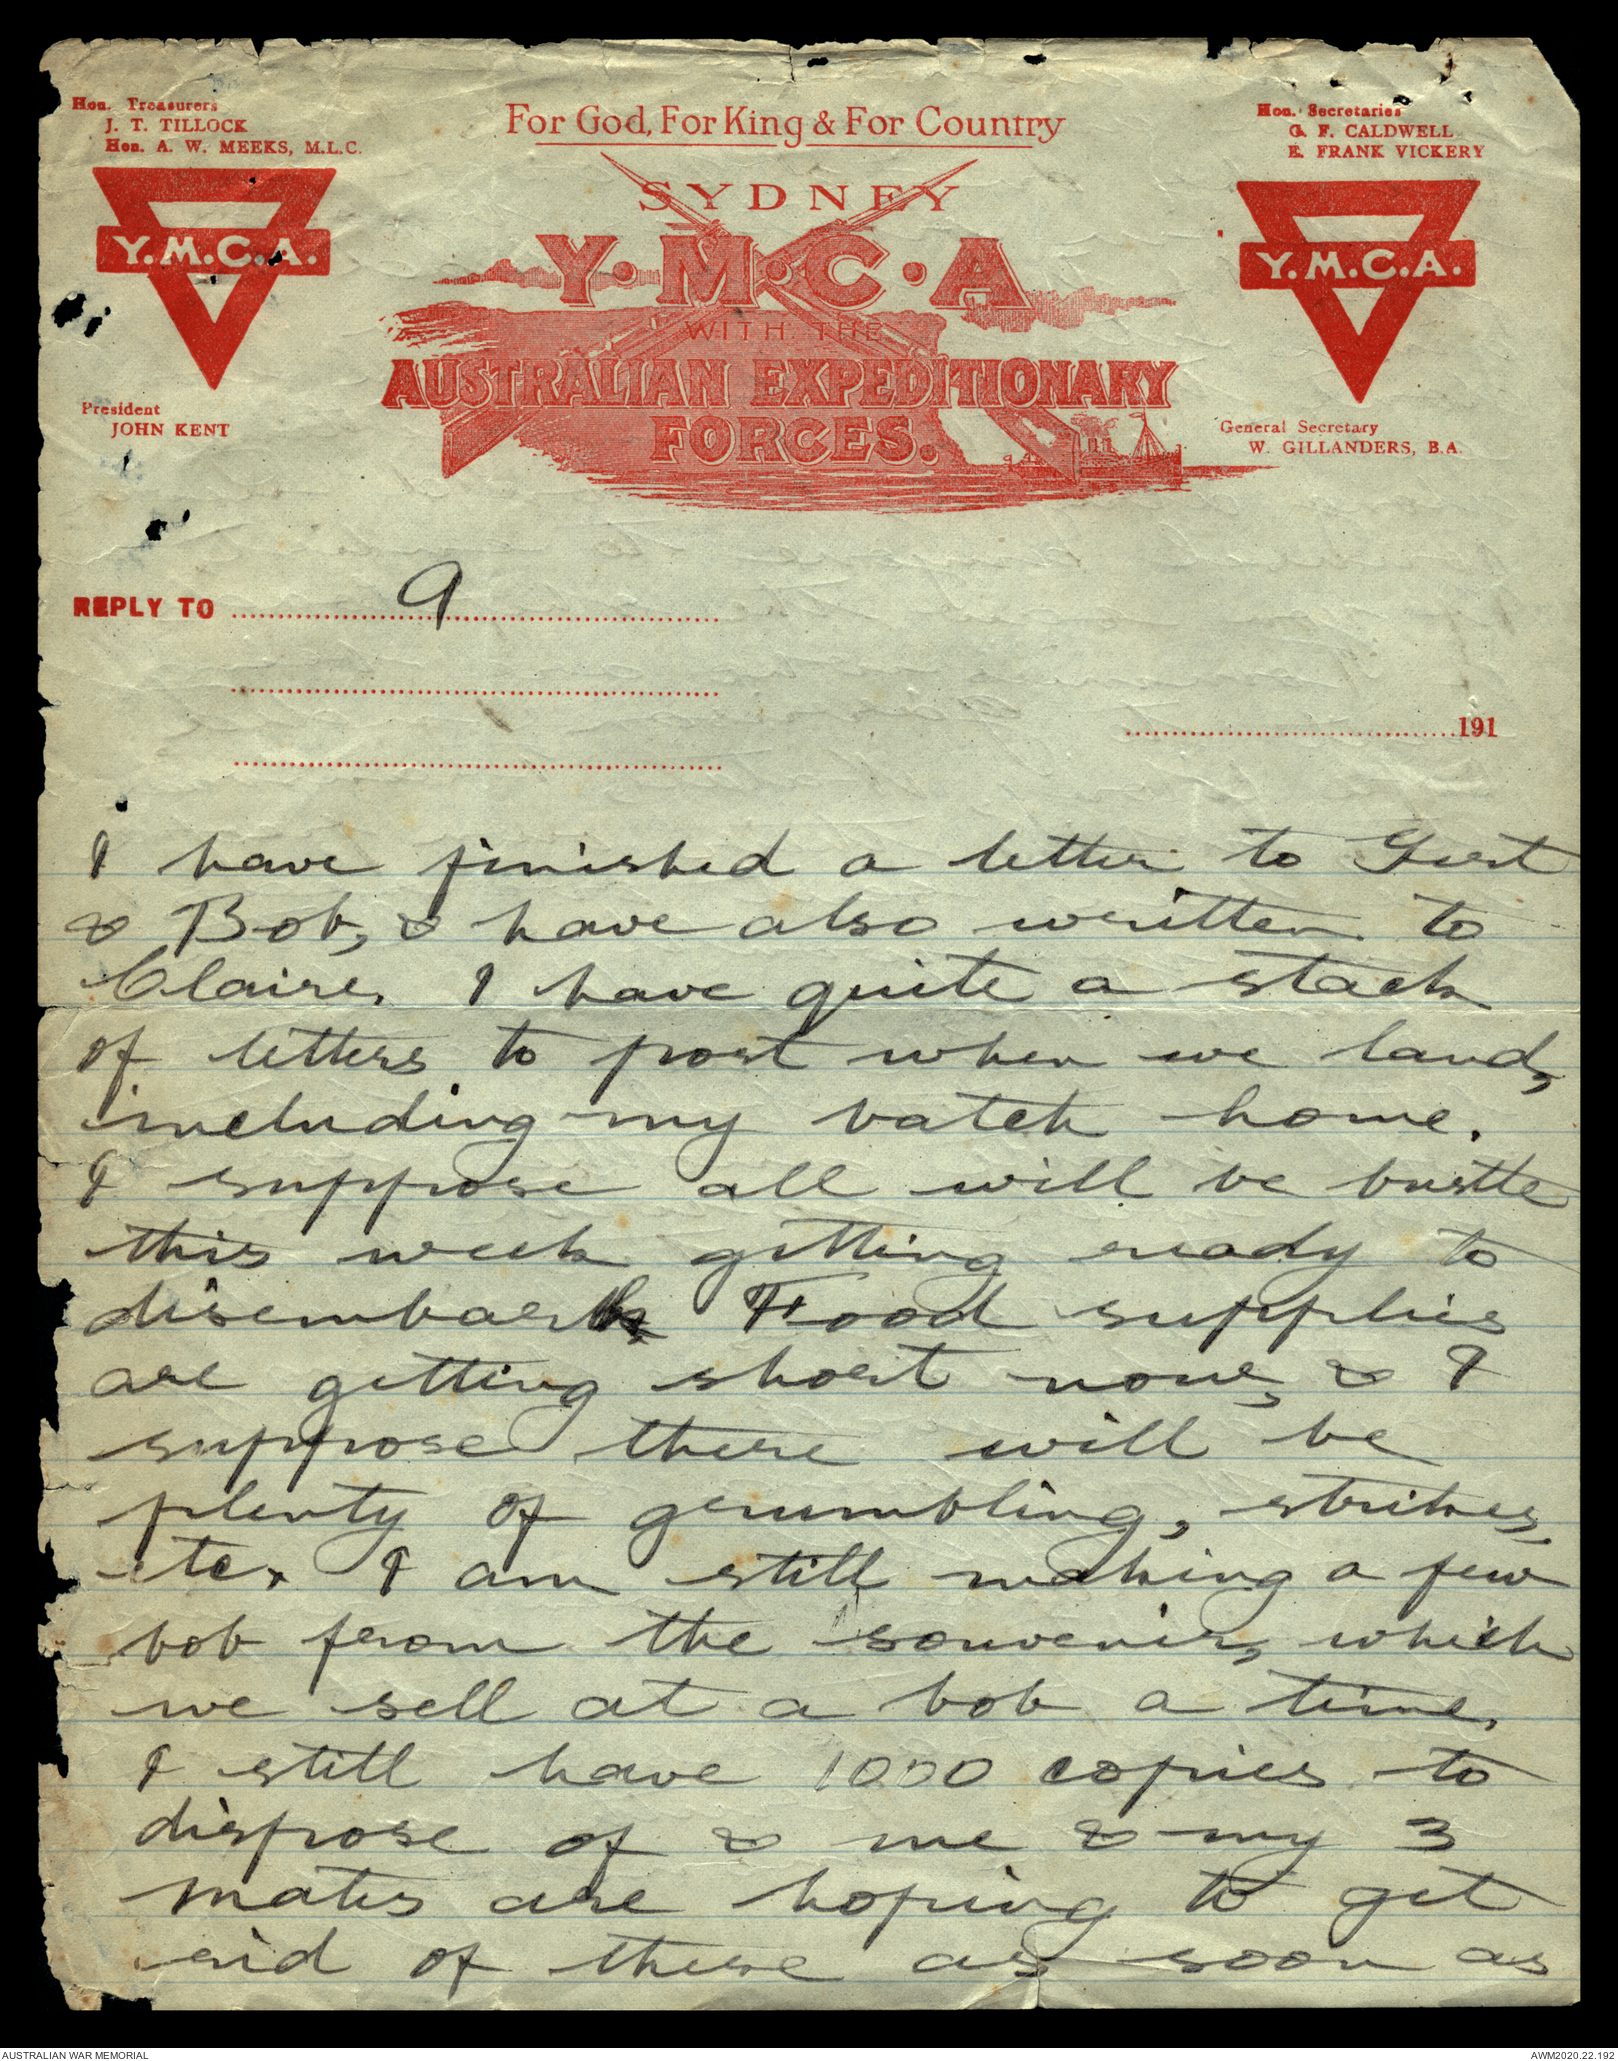 Hon. Treasurers
J. T. TILLOCK
Hon. A. W. MEEKS, M.L.C.
For God, For King & For Country
Hon. Secretaries
G. F. CALDWELL
E. FRANK VICKERY
SYDNEY
Y.M.C.A.
Y.M.C.A
Y.M.C.A.
WITH THE
AUSTRALIAN EXPEDITIONARY
FORCES.
President
JOHN KENT
General Secretary
W. GILLANDERS, B.A.
REPLY TO 9
191
I have finished a letter to Gert
& Bob, & have also written to
Claire. I have quite a stack
of letters to post when we land,
including my batch home.
I suppose all will be bustle
this week getting ready to
disembark. Food supplies
are getting short now, & I
suppose there will be
plenty of grumbling, strikes,
etc. I am still making a few
bob from the souvenir, which
we sell at a bob a time.
I still have 1000 copies to
dispose of & me & my 3
mates are hoping to get
rid of these as soon as
AUSTRALIAN WAR MEMORIAL
AWM2020.22.192